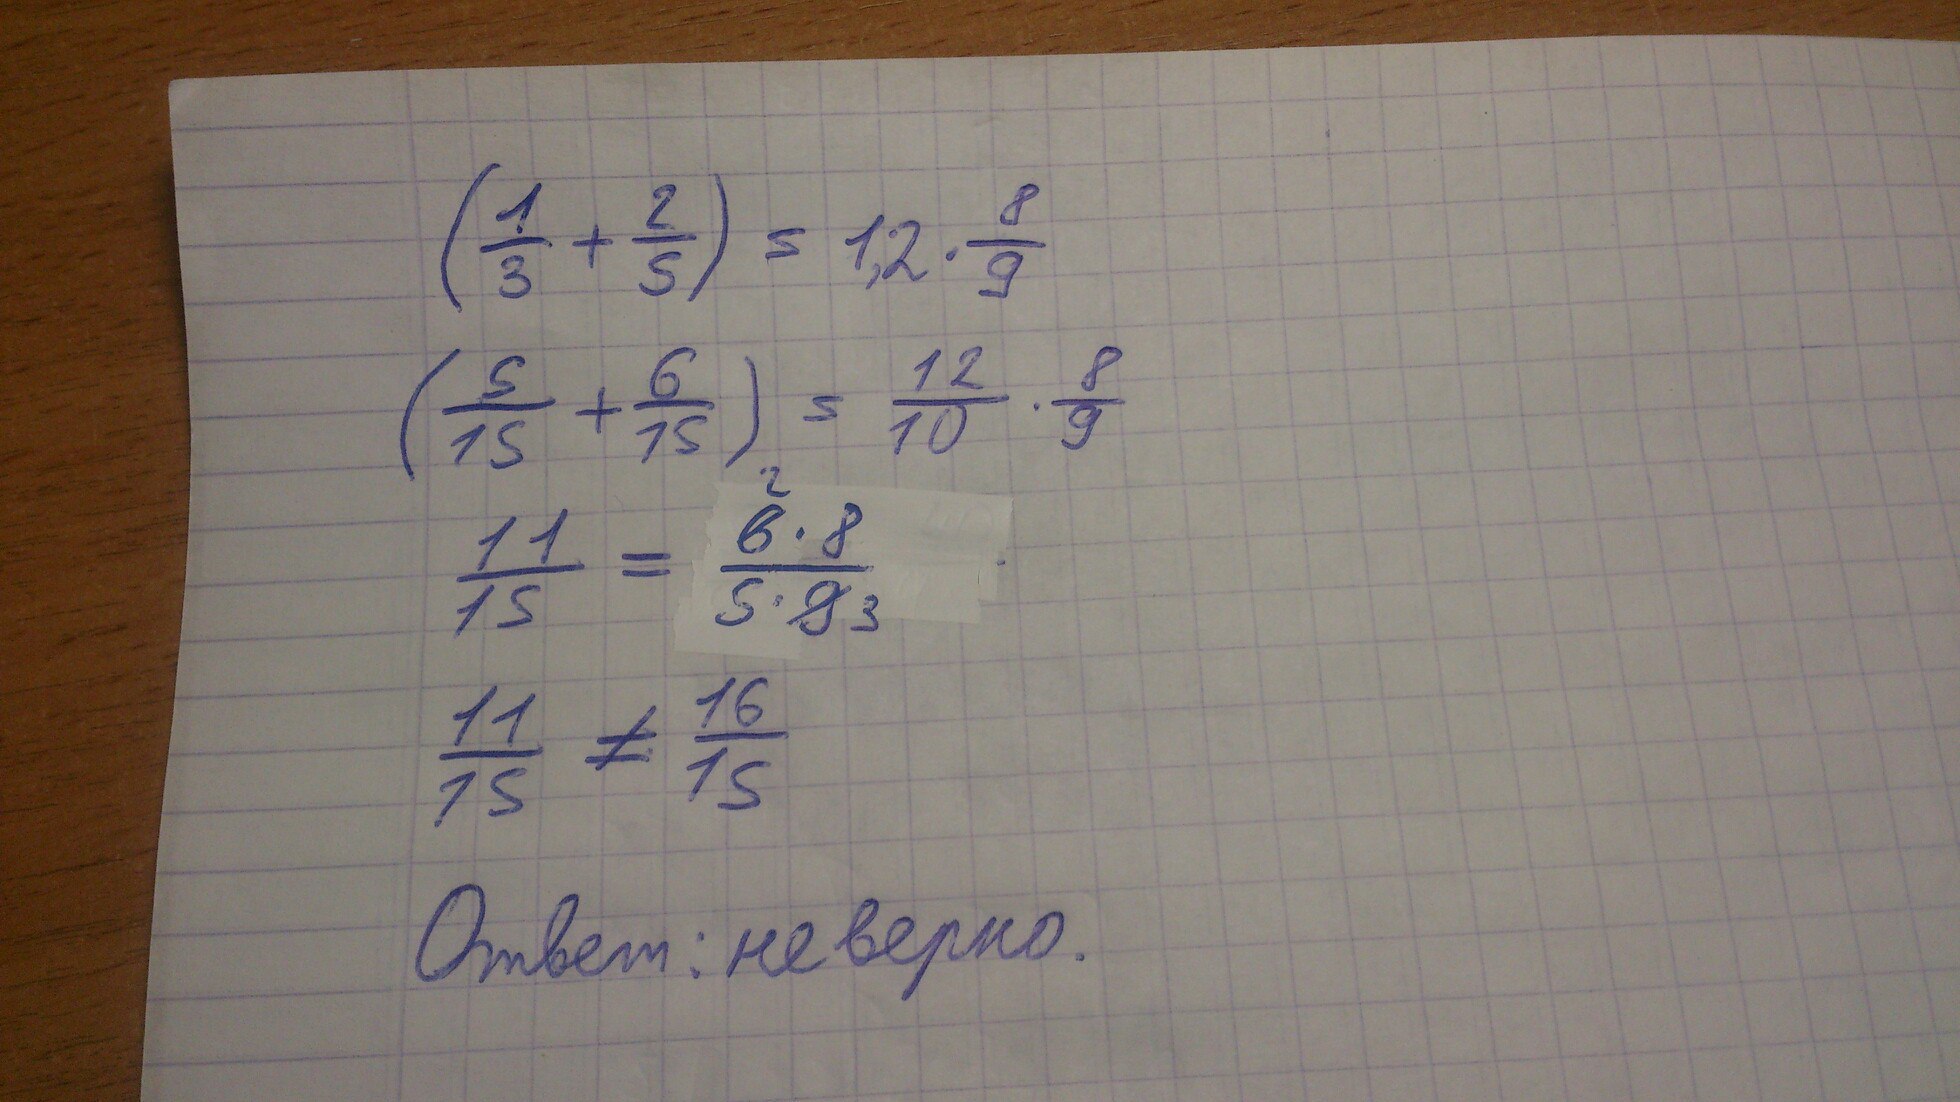 (1/3 + 2/5) = 1,2 · 8/9
(5/15 + 6/15) = 12/10 · 8/9
11/15 = 6 2 · 8 / 5 · 9 3
11/15 ≠ 16/15
Ответ: неверно.